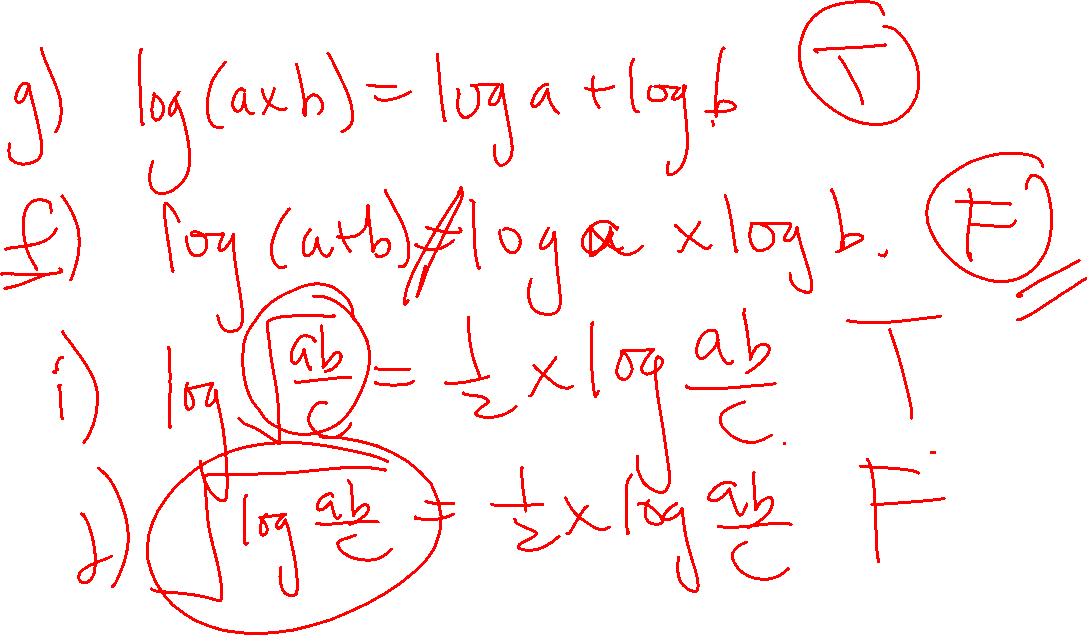 g) log (a×b) = log a + log b T
f) log (a+b) ≠ log a × log b. F
i) log √(ab/c) = 1/2 × log ab/c. T
j) √(log ab/c) = 1/2 × log ab/c F